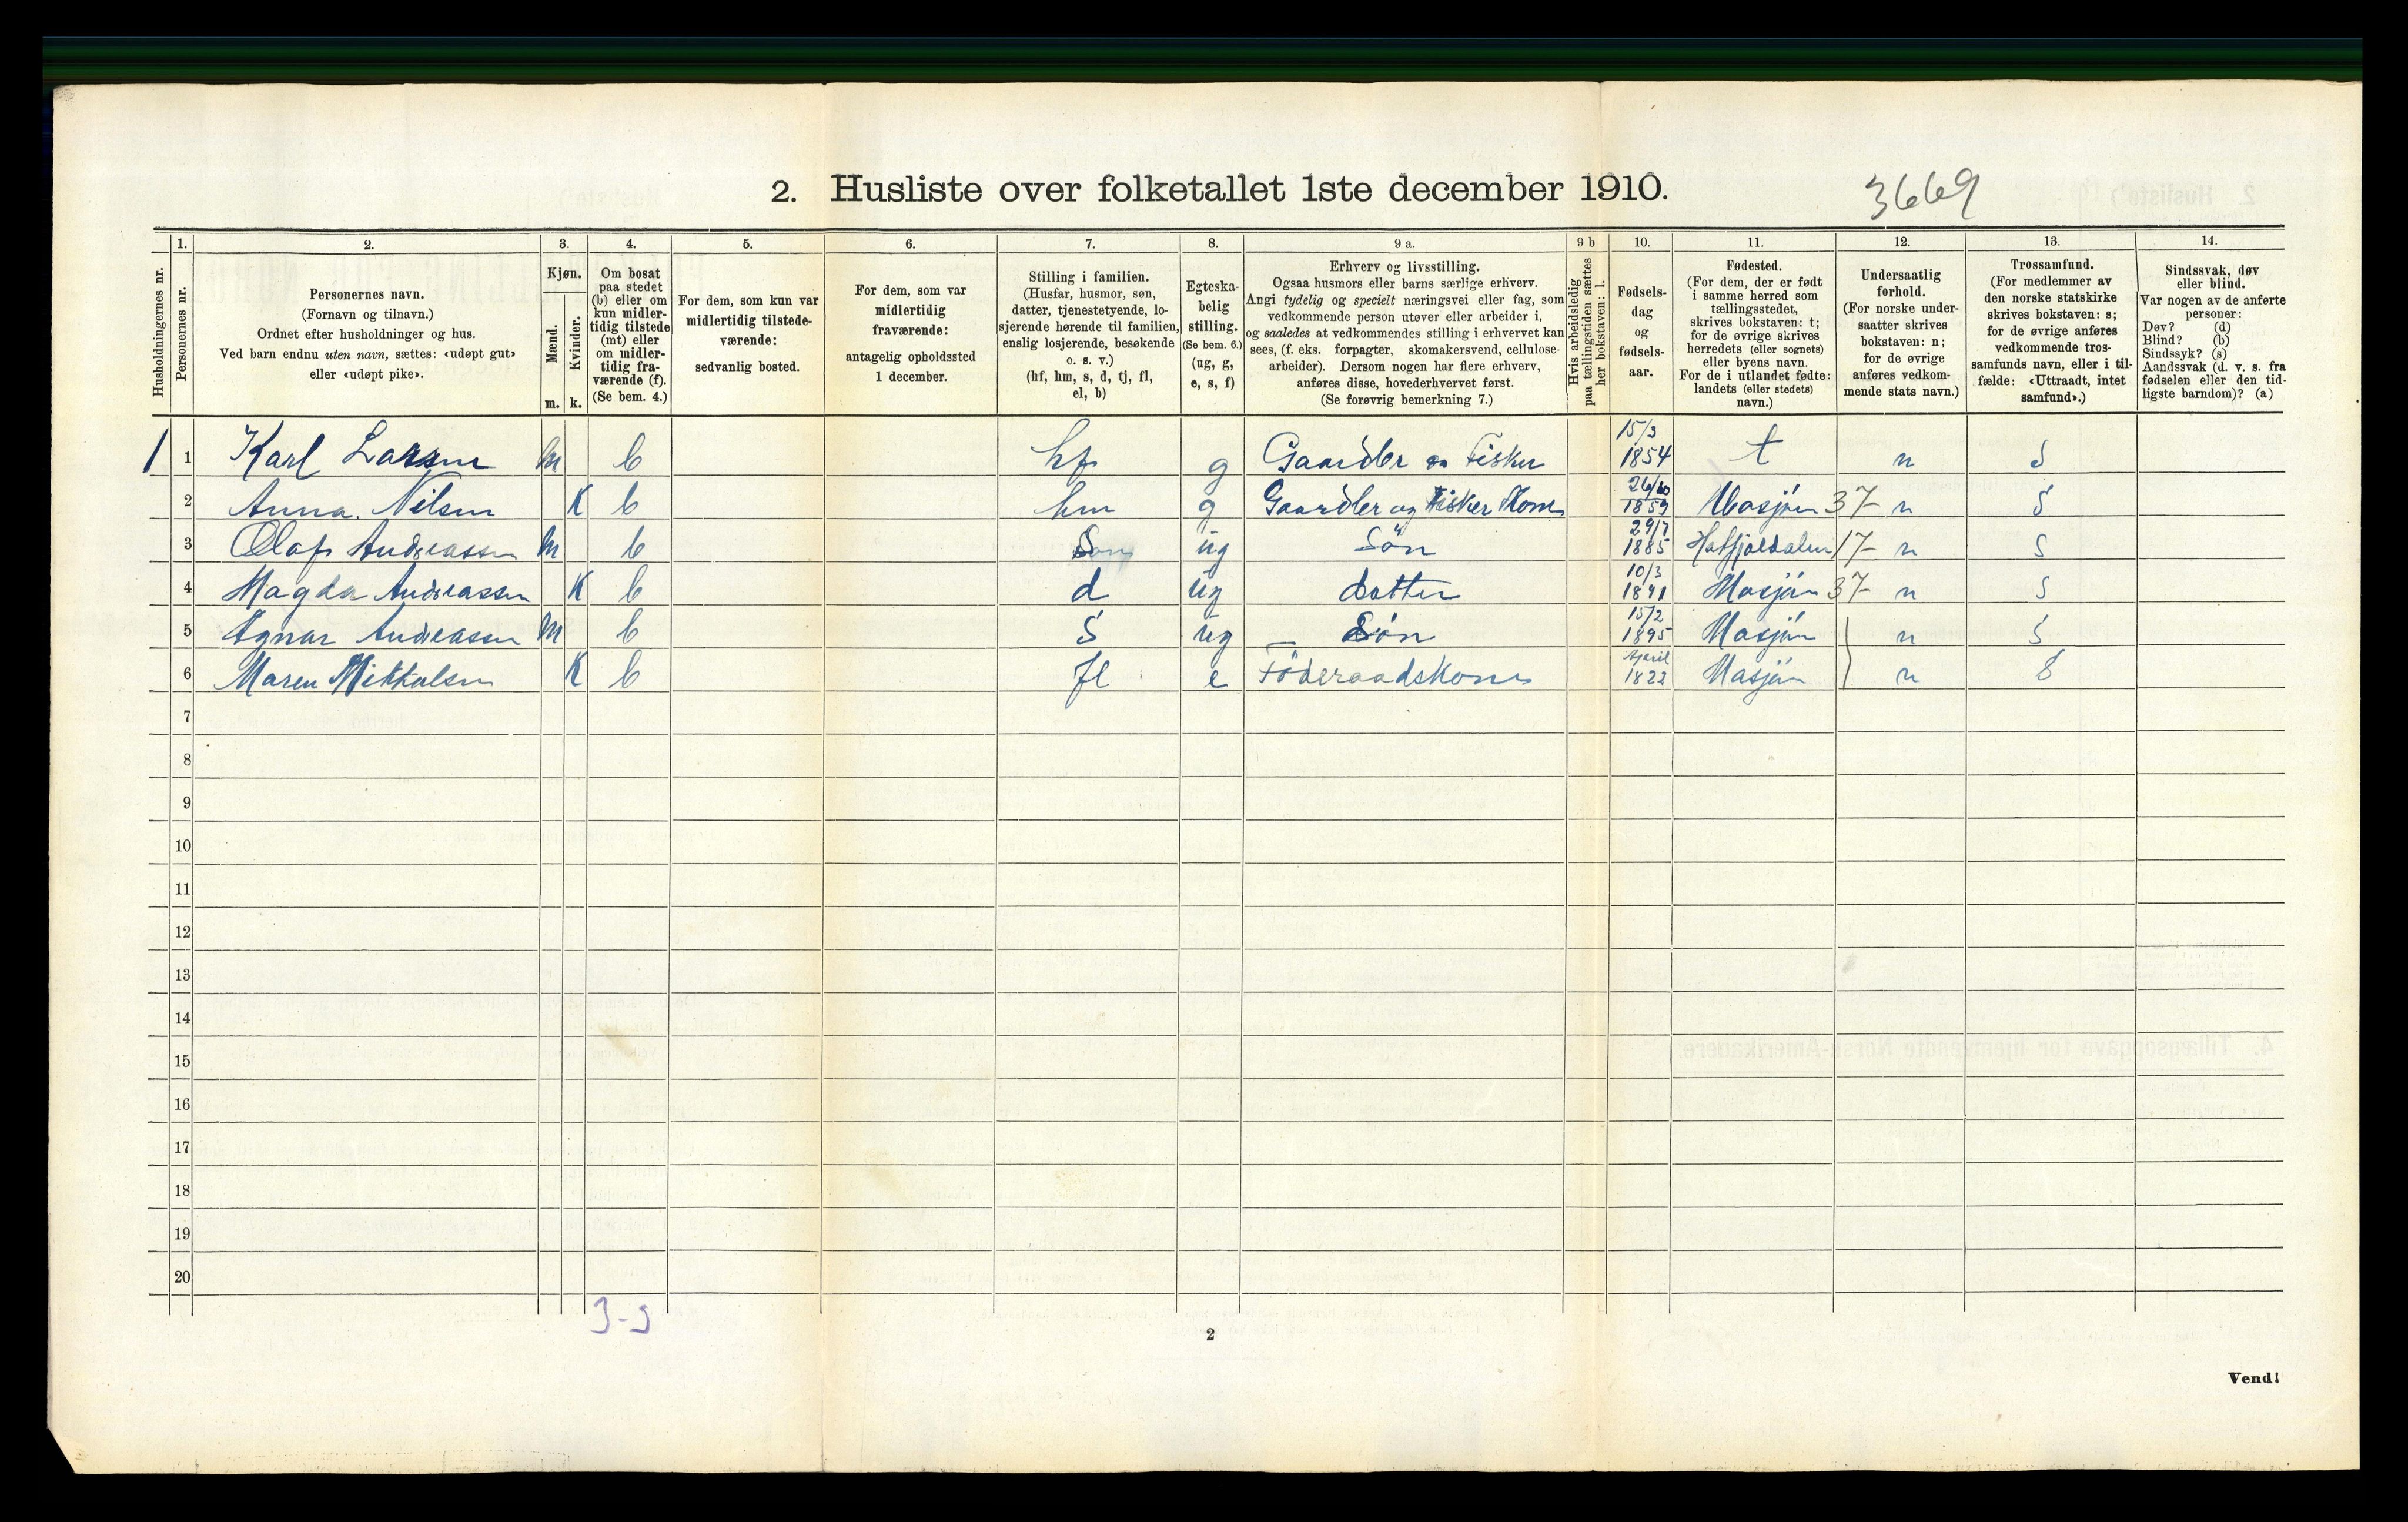 2. Husliste over folketallet 1ste december 1910.
3669
Husholdningernes nr.
1.
Personernes nr.
2.
Personernes navn.
(Fornavn og tilnavn.)
Ordnet efter husholdninger og hus.
Ved barn endnu uten navn, sættes: «udøpt gut»
eller «udøpt pike».
3.
Kjøn.
Mænd.
Kvinder.
m. k.
4.
Om bosat
paa stedet
(b) eller om
kun midler-
tidig tilstede
(mt) eller
om midler-
tidig fra-
værende (f).
(Se bem. 4.)
5.
For dem, som kun var
midlertidig tilstede-
værende:
sedvanlig bosted.
6.
For dem, som var
midlertidig
fraværende:
antagelig opholdssted
1 december.
7.
Stilling i familien.
(Husfar, husmor, søn,
datter, tjenestetyende, lo-
sjerende hørende til familien,
enslig losjerende, besøkende
o. s. v.)
(hf, hm, s, d, tj, fl,
el, b)
8.
Egteska-
belig
stilling.
(Se bem. 6.)
(ug, g,
e, s, f)
9 a.
Erhverv og livsstilling.
Ogsaa husmors eller barns særlige erhverv.
Angi tydelig og specielt næringsvei eller fag, som
vedkommende person utøver eller arbeider i,
og saaledes at vedkommendes stilling i erhvervet kan
sees, (f. eks. forpagter, skomakersvend, cellulose-
arbeider). Dersom nogen har flere erhverv,
anføres disse, hovederhvervet først.
(Se forøvrig bemerkning 7.)
9 b
Hvis arbeidsledig
paa tællingstiden sættes
her bokstaven: l.
10.
Fødsels-
dag
og
fødsels-
aar.
11.
Fødested.
(For dem, der er født
i samme herred som
tællingsstedet,
skrives bokstaven: t;
for de øvrige skrives
herredets (eller sognets)
eller byens navn.
For de i utlandet fødte:
landets (eller stedets)
navn.)
12.
Undersaatlig
forhold.
(For norske under-
saatter skrives
bokstaven: n;
for de øvrige
anføres vedkom-
mende stats navn.)
13.
Trossamfund.
(For medlemmer av
den norske statskirke
skrives bokstaven: s;
for de øvrige anføres
vedkommende tros-
samfunds navn, eller i til-
fælde: «Uttraadt, intet
samfund».)
14.
Sindssvak, døv
eller blind.
Var nogen av de anførte
personer:
Døv? (d)
Blind? (b)
Sindssyk? (s)
Aandssvak (d. v. s. fra
fødselen eller den tid-
ligste barndom)? (a)
1 1 Karl Larsen m b hf g Gaardbr og Fisker 15/3 1854 t n S
2 Anna Nilsen K b hm g Gaardbr og Fisker Kone 26/10 1859 Mosjøen 37- n S
3 Olaf Andreassen m b Søn ug Søn 29/7 1885 Hatfjeldalen 17- n S
4 Magda Andreassen K b d ug datter 10/3 1891 Mosjøn 37- n S
5 Agnar Andreassen m b S ug Søn 15/2 1895 Mosjøn n S
6 Maren Mikkalsen K b fl e Föderaadskone April 1822 Mosjøn n S
7
8
9
10
11
12
13
14
15
16
17
18
19
20
3-3
2
Vend!